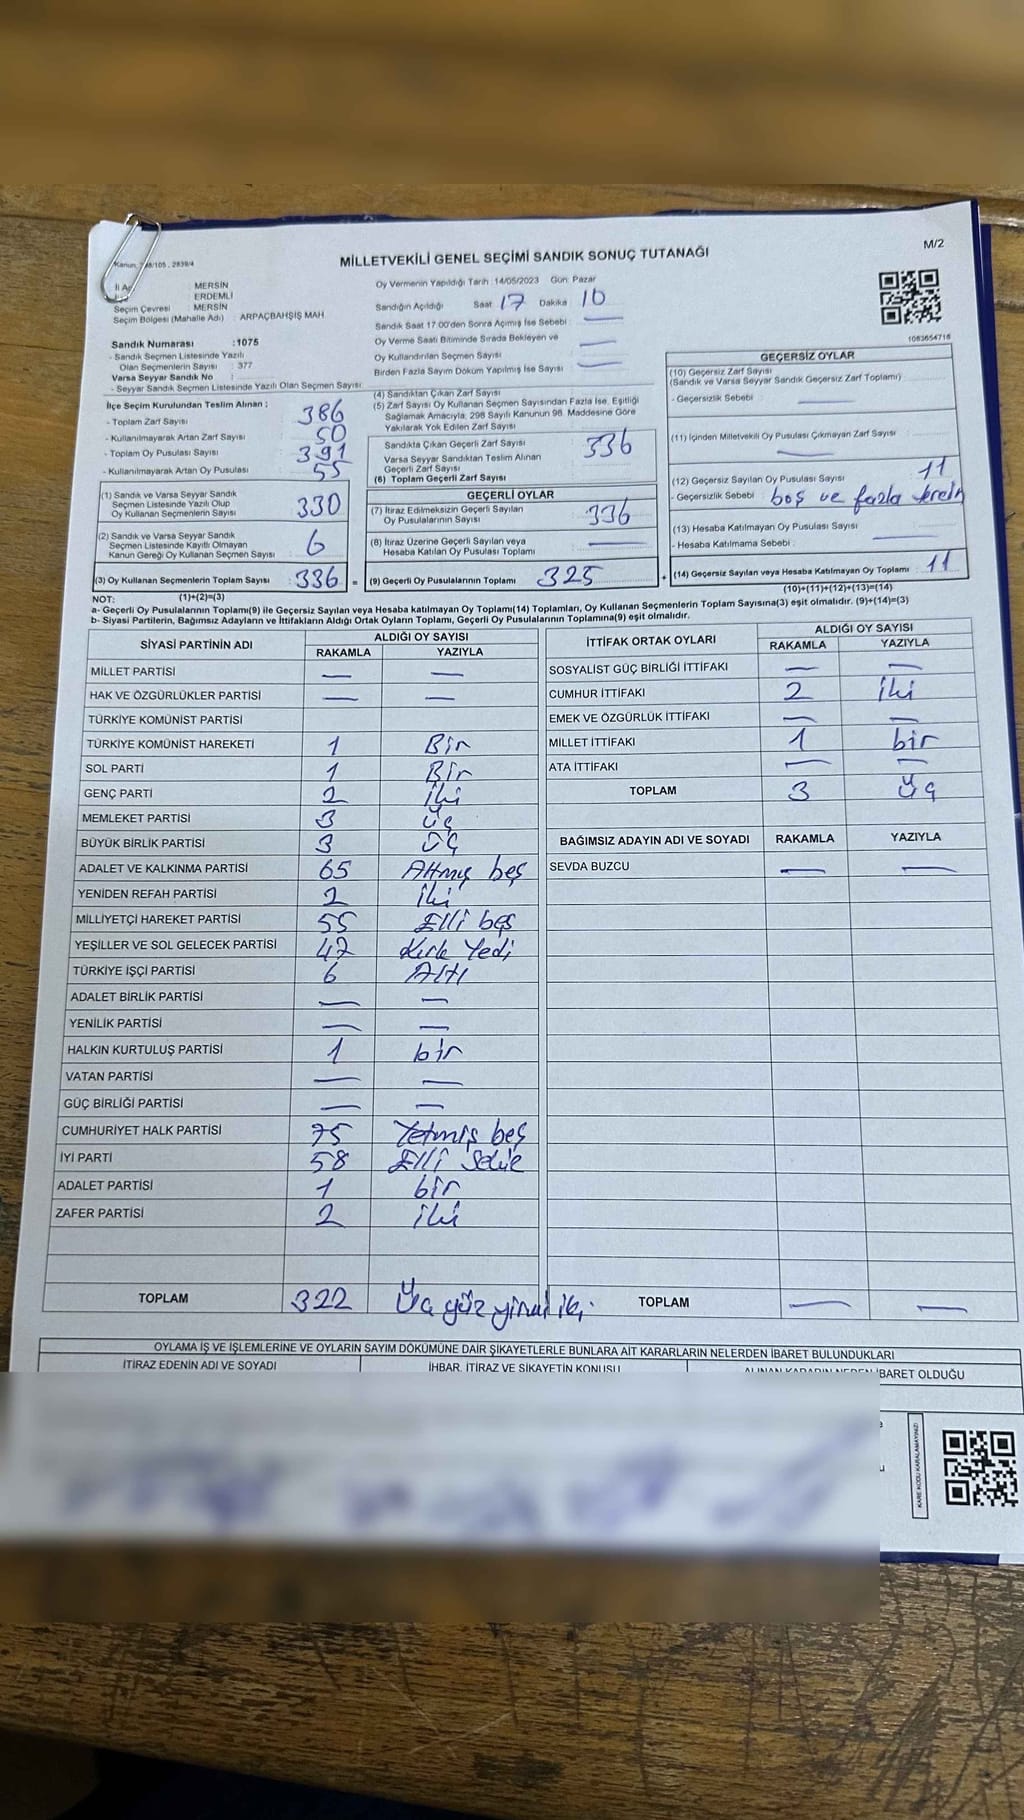 M/2
MİLLETVEKİLİ GENEL SEÇİMİ SANDIK SONUÇ TUTANAĞI
İl Adı MERSİN
ERDEMLİ
Seçim Çevresi MERSİN
Seçim Bölgesi (Mahalle Adı) : ARPAÇBAHŞİŞ MAH
Sandık Numarası :1075
- Sandık Seçmen Listesinde Yazılı
Olan Seçmenlerin Sayısı : 377
Varsa Seyyar Sandık No :
- Seyyar Sandık Seçmen Listesinde Yazılı Olan Seçmen Sayısı:
Oy Vermenin Yapıldığı Tarih :14/05/2023 Gün: Pazar
Sandığın Açıldığı Saat 17 Dakika 10
Sandık Saat 17:00'den Sonra Açımış İse Sebebi : —
Oy Verme Saati Bitiminde Sırada Bekleyen ve
Oy Kullandırılan Seçmen Sayısı —
Birden Fazla Sayım Döküm Yapılmış İse Sayısı —
1083654716
İlçe Seçim Kurulundan Teslim Alınan ;
- Toplam Zarf Sayısı 386
- Kullanılmayarak Artan Zarf Sayısı 50
- Toplam Oy Pusulası Sayısı 391
- Kullanılmayarak Artan Oy Pusulası 55
(1) Sandık ve Varsa Seyyar Sandık
Seçmen Listesinde Yazılı Olup
Oy Kullanan Seçmenlerin Sayısı 330
(2) Sandık ve Varsa Seyyar Sandık
Seçmen Listesinde Kayıtlı Olmayan
Kanun Gereği Oy Kullanan Seçmen Sayısı 6
(3) Oy Kullanan Seçmenlerin Toplam Sayısı : 336 =
(1)+(2)=(3)
(4) Sandıktan Çıkan Zarf Sayısı
(5) Zarf Sayısı Oy Kullanan Seçmen Sayısından Fazla İse, Eşitliği
Sağlamak Amacıyla, 298 Sayılı Kanunun 98. Maddesine Göre
Yakılarak Yok Edilen Zarf Sayısı
Sandıkta Çıkan Geçerli Zarf Sayısı 336
Varsa Seyyar Sandıktan Teslim Alınan
Geçerli Zarf Sayısı
(6) Toplam Geçerli Zarf Sayısı
GEÇERLİ OYLAR
(7) İtiraz Edilmeksizin Geçerli Sayılan
Oy Pusulalarının Sayısı 336
(8) İtiraz Üzerine Geçerli Sayılan veya
Hesaba Katılan Oy Pusulası Toplamı —
(9) Geçerli Oy Pusulalarının Toplamı 325 +
GEÇERSİZ OYLAR
(10) Geçersiz Zarf Sayısı
(Sandık ve Varsa Seyyar Sandık Geçersiz Zarf Toplamı)
- Geçersizlik Sebebi : —
(11) İçinden Milletvekili Oy Pusulası Çıkmayan Zarf Sayısı —
(12) Geçersiz Sayılan Oy Pusulası Sayısı 11
- Geçersizlik Sebebi : boş ve fazla
(13) Hesaba Katılmayan Oy Pusulası Sayısı
- Hesaba Katılmama Sebebi : —
(14) Geçersiz Sayılan veya Hesaba Katılmayan Oy Toplamı : 11
(10)+(11)+(12)+(13)=(14)
NOT:
a- Geçerli Oy Pusulalarının Toplamı(9) ile Geçersiz Sayılan veya Hesaba katılmayan Oy Toplamı(14) Toplamları, Oy Kullanan Seçmenlerin Toplam Sayısına(3) eşit olmalıdır. (9)+(14)=(3)
b- Siyasi Partilerin, Bağımsız Adayların ve İttifakların Aldığı Ortak Oyların Toplamı, Geçerli Oy Pusulalarının Toplamına(9) eşit olmalıdır.
SİYASİ PARTİNİN ADI ALDIĞI OY SAYISI
RAKAMLA YAZIYLA
MİLLET PARTİSİ — —
HAK VE ÖZGÜRLÜKLER PARTİSİ — —
TÜRKİYE KOMÜNİST PARTİSİ
TÜRKİYE KOMÜNİST HAREKETİ 1 Bir
SOL PARTİ 1 Bir
GENÇ PARTİ 2 iki
MEMLEKET PARTİSİ 3 üç
BÜYÜK BİRLİK PARTİSİ 3 üç
ADALET VE KALKINMA PARTİSİ 65 Altmış beş
YENİDEN REFAH PARTİSİ 2 iki
MİLLİYETÇİ HAREKET PARTİSİ 55 Elli beş
YEŞİLLER VE SOL GELECEK PARTİSİ 47 Kırk Yedi
TÜRKİYE İŞÇİ PARTİSİ 6 Altı
ADALET BİRLİK PARTİSİ — —
YENİLİK PARTİSİ — —
HALKIN KURTULUŞ PARTİSİ 1 bir
VATAN PARTİSİ — —
GÜÇ BİRLİĞİ PARTİSİ — —
CUMHURİYET HALK PARTİSİ 75 Yetmiş beş
İYİ PARTİ 58 Elli Sekiz
ADALET PARTİSİ 1 bir
ZAFER PARTİSİ 2 iki
TOPLAM 322 Üç yüz yirmi iki
İTTİFAK ORTAK OYLARI ALDIĞI OY SAYISI
RAKAMLA YAZIYLA
SOSYALİST GÜÇ BİRLİĞİ İTTİFAKI — —
CUMHUR İTTİFAKI 2 iki
EMEK VE ÖZGÜRLÜK İTTİFAKI — —
MİLLET İTTİFAKI 1 bir
ATA İTTİFAKI — —
TOPLAM 3 Üç
BAĞIMSIZ ADAYIN ADI VE SOYADI RAKAMLA YAZIYLA
SEVDA BUZCU — —
TOPLAM — —
OYLAMA İŞ VE İŞLEMLERİNE VE OYLARIN SAYIM DÖKÜMÜNE DAİR ŞİKAYETLERLE BUNLARA AİT KARARLARIN NELERDEN İBARET BULUNDUKLARI
İTİRAZ EDENİN ADI VE SOYADI İHBAR, İTİRAZ VE ŞİKAYETİN KONUSU ALINAN KARARIN NEDEN İBARET OLDUĞU
KARE KODU KARALAMAYINIZ!